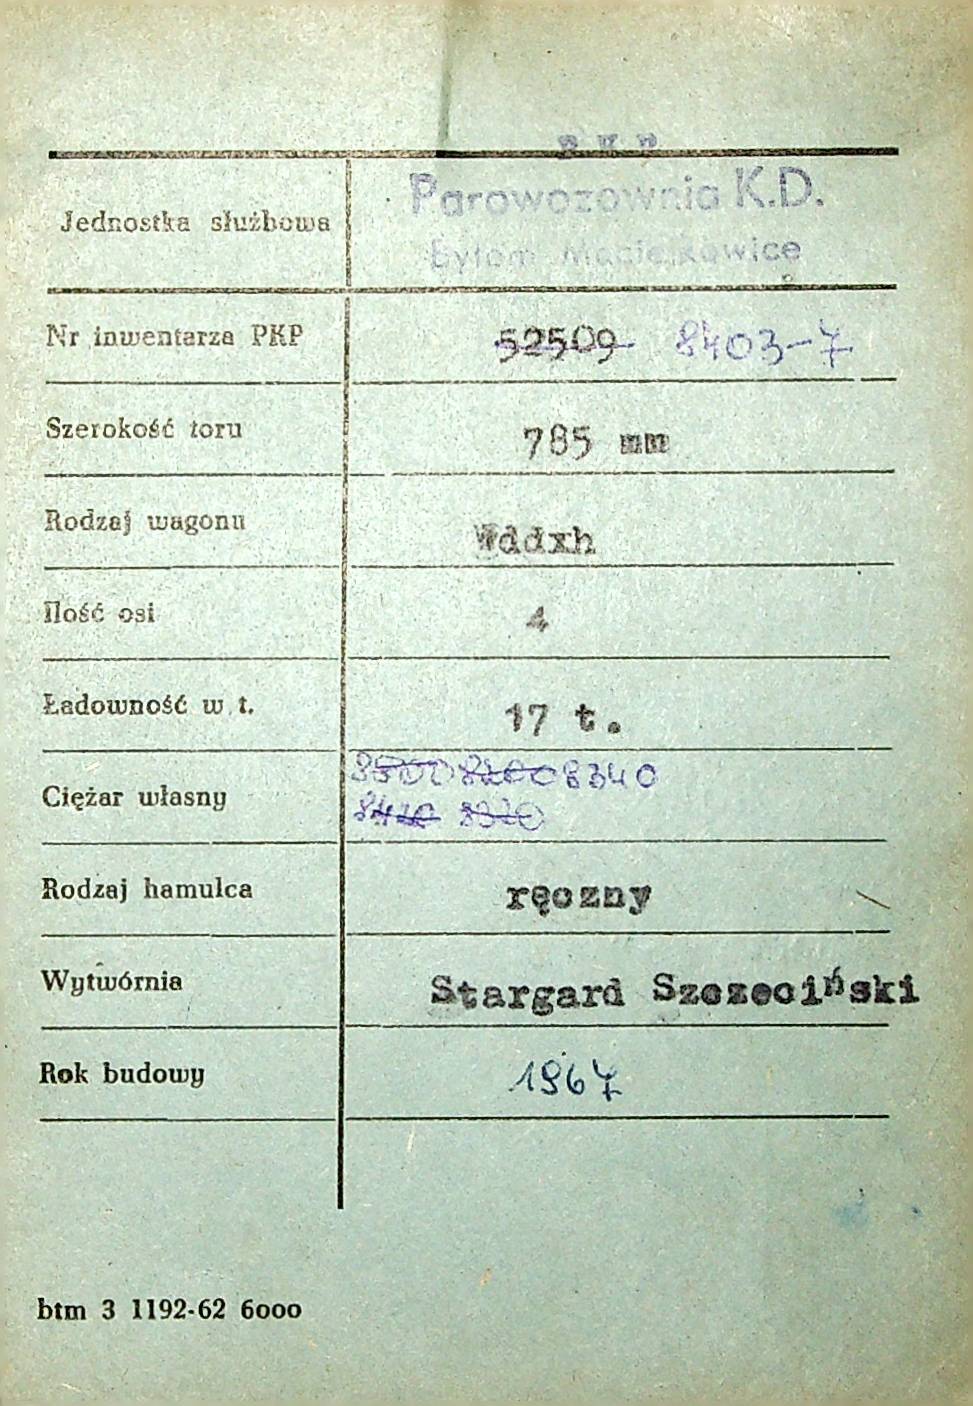 P K P
Jednostka służbowa Parowozownia K.D.
Bytom Maciejkowice
Nr inwentarza PKP 52509 8403-7
Szerokość toru 785 mm
Rodzaj wagonu Wddxh
Ilość osi 4
Ładowność w t. 17 t.
8200 8340
Ciężar własny
Rodzaj hamulca ręozny
Wytwórnia Stargard Szozeoiński
Rok budowy 1967
btm 3 1192-62 6000